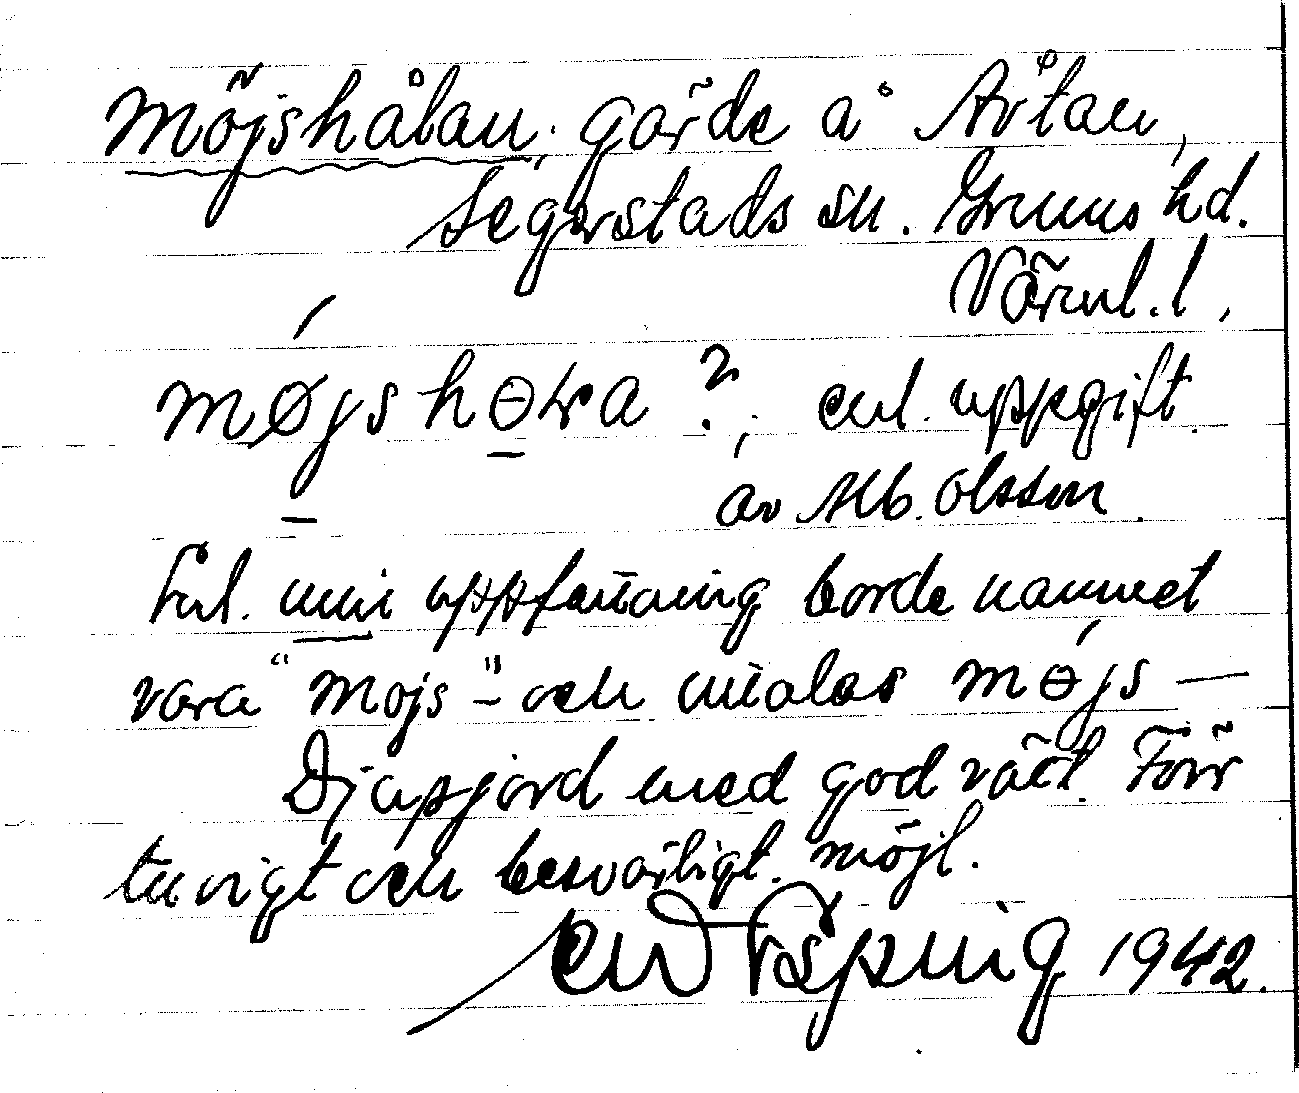 Möjshålan, gärde å Åvtan,
Segerstads sn. Grums hd.
Värml. l.
møjshɵɽa ?, enl. uppgift
av Alb. Olsson.
Enl. min uppfattning borde namnet
vara "Mojs"- och uttalas mɵjs —
Djupjord med god växt. Förr
tuvigt och besvärligt möjl.
1942.